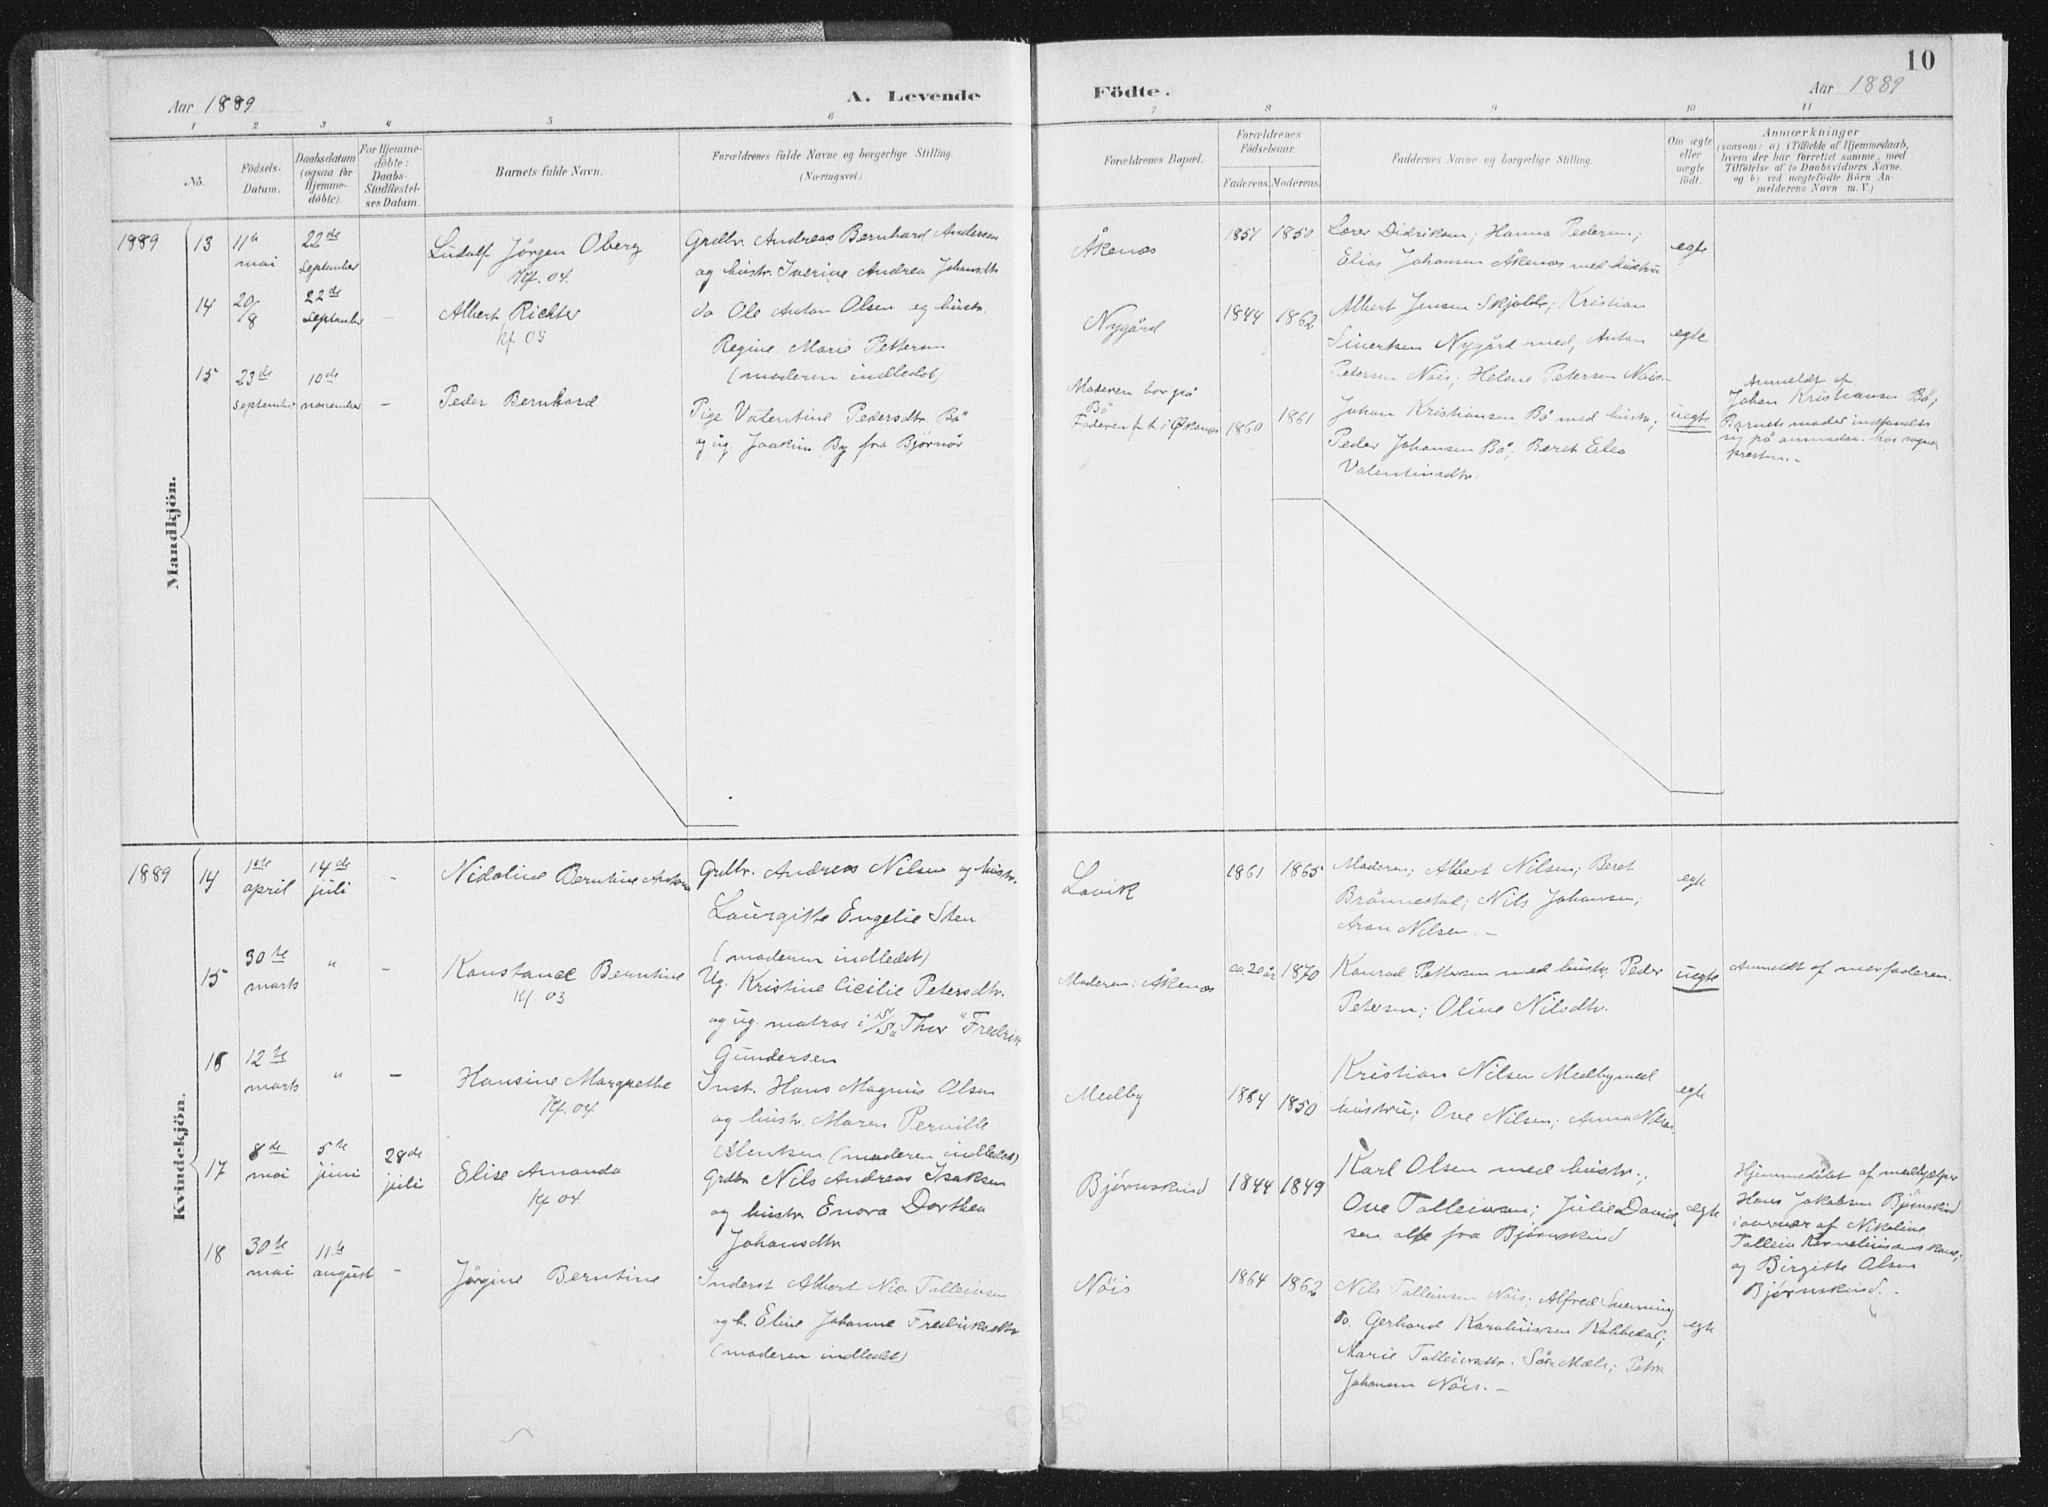 10
Aar 1889
A. Levende
Födte.
Aar 1889
1 2 3 4 5 6 7 8 9 10 11
No.
Födsels-
Datum.
Daabsdatum
(ogsaa for
Hjemme-
döbte).
For Hjemme-
döbte:
Daabs-
Stadfæstel-
ses Datum.
Barnets fulde Navn.
Forældrenes fulde Navne og borgerlige Stilling.
(Næringsvei.)
Forældrenes Bopæl.
Forældrenes
Födselsaar.
Faderens. Moderens.
Faddernes Navne og borgerlige Stilling.
Om ægte
eller
uægte
födt.
Anmærkninger
(saasom: a) i Tilfælde af Hjemmedaab,
hvem der har forrettet samme, med
Tilföielse af to Daabsvidners Navne.
og b) ved uægtefödte Börn An-
melderens Navn m. V.)
Mandkjön.
1889 13 11te mai
22de september
Ludolf Jörgen Oberg
Kf. 04.
Grdbr. Andreas Bernhard Andersen
og hustr. Iverine Andrea Johansdtr
Åkenæs
1851 1850
Didriksen; Hanna Pedersen;
Elias Johansen Åkenæs med hustru
egte
14 20/8
22de september
–
Albert Richter
Kf. 05
do Ole Anton Olsen og hustr.
Regine Marie Pettersen
(moderen indledet)
Nygård
1844 1862
Albert Jensen Skjolde; Kristian
Sivertsen Nygård med, Anton
Petersen Nöis; Helene Petersen Nöis.
egte
15 23de september
10de november
–
Peder Bernhard
Pige Valentine Pedersdtr. Bö
og ug. Joakim By fra Bjørnör
Moderen bor på
Bö
Faderen f. t. i Økenæs
1860 1861
Johan Kristiansen Bö med hustr;
Peder Johansen Bö; Beret Elea
Valentinsdtr.
uegte
Anmeldt af
Johan Kristiansen Bö;
Barnets moder indfandt
sig på anmoden hos sogne
presten.–
Kvindekjön.
1889 14 1ste april
14de juli
–
Nidoline Berntine Antona
Grdbr. Andreas Nilsen og hustr.
Laurgitte Engelie Sten
(moderen indledet)
Lavik
1861 1865
Moderen; Albert Nilsen; Beret
Brönnestad; Nils Johansen;
Aron Nilsen. –
egte
15 30te marts
"
–
Konstance Berntine
Kf. 03
Ug. Kristine Cicilie Petersdtr.
og ug. matros i S/S "Thor" Fredrik
Gundersen
Moderen: Åkenæs
ca. 20 år 1870
Konrad Pettersen med hustr; Peder
Petersen; Oline Nilsdtr.
uegte
Anmeldt af morfaderen.
16 12te marts
"
–
Hansine Margrethe
Kf. 04
Inst. Hans Magnus Olsen
og hustr. Maren Pernille
(moderen indledet)
Medby
1864 1850
Kristian Nilsen Medby med
hustru; Ove Nilsen; Anna Nilsen
egte
17 8de mai
5te juni
28de juli
Elise Amanda
Kf. 04
Grdbr. Nils Andreas Isaksen
og hustr. Enora Dorthea
Johansdtr.
Bjørnskind
1844 1849
Karl Olsen med hustr.;
Ove Tolleivsen; Julie David-
sen alle fra Bjørnskind
egte
Hjemmedöbt af medhjælper
Hans Jakobsen Bjørnskind
i nærvær af Nikoline,
Tolleiv Korneliussens kone;
og Birgitte Olsen
Bjørnskind. –
18 30te mai
11te august
–
Jörgine Berntine
Inderst Albert Nic. Tolleivsen
og h. Eline Johanne Fredriksdtr
(moderen indledet)
Nöis
1864 1862
Nils Tolleivsen Nöis; Alfred
do. Gerhard Karoliussen
Marie Tolleivsdtr. Petra
Johansen Nöis. –
egte